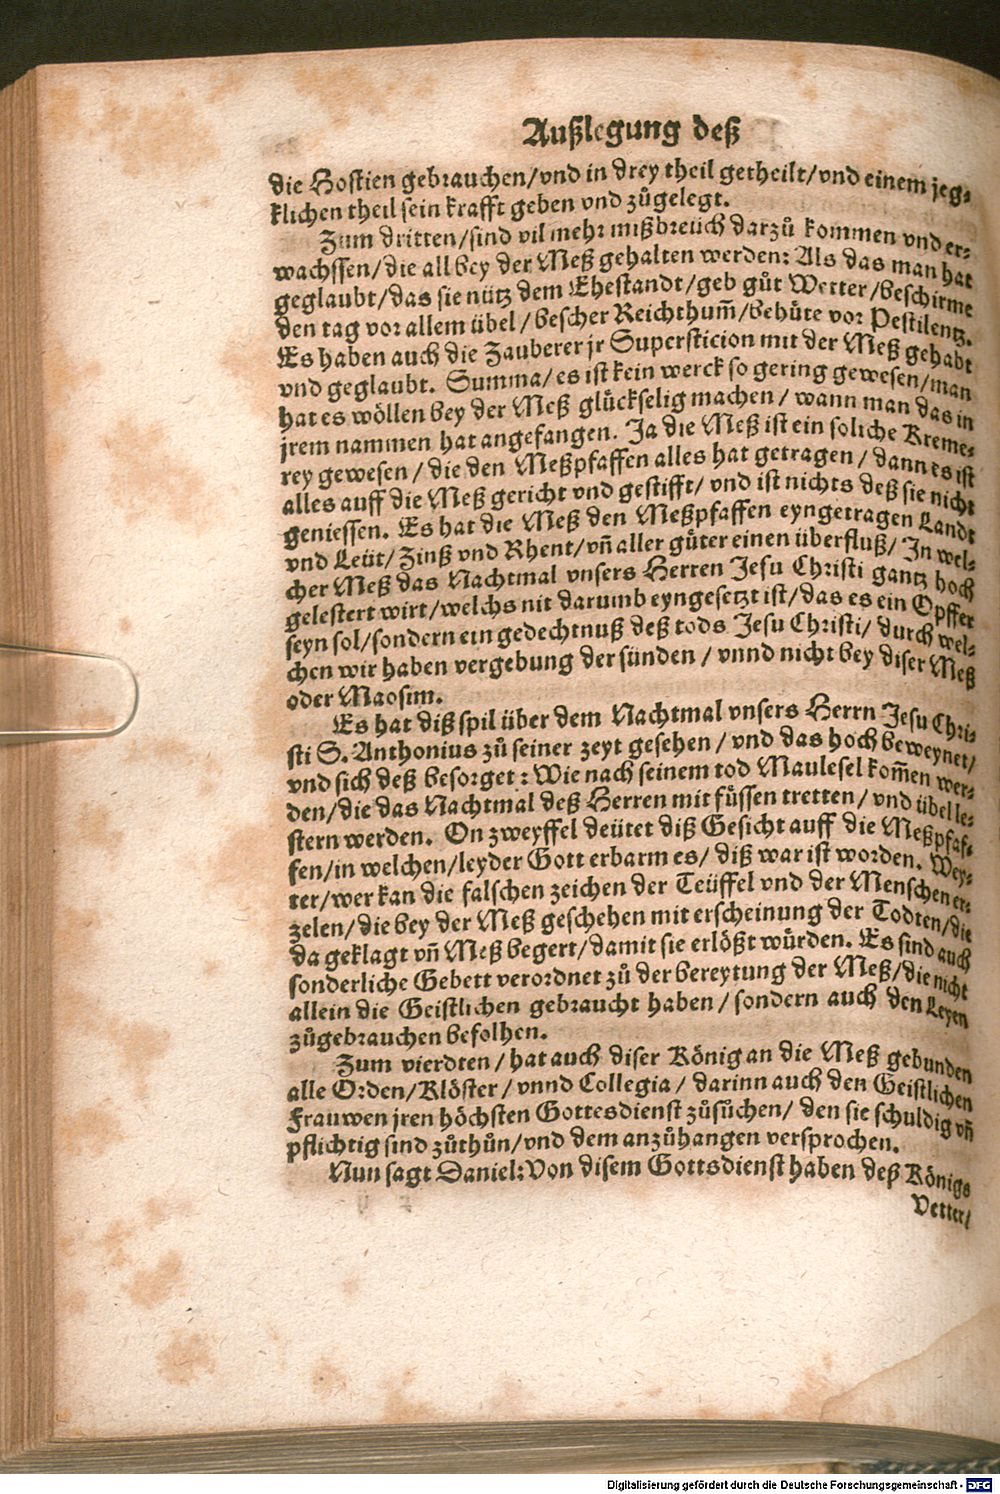 Außlegung deß
die Hostien gebrauchen/vnd in drey theil getheilt/vnd einem jeg⸗
klichen theil sein krafft geben vnd zůgelegt.
Zum dritten/sind vil mehr mißbreüch darzů kommen vnd er⸗
wachssen/die all bey der Meß gehalten werden: Als das man hat
geglaubt/das sie nütz dem Ehestandt/geb gůt Wetter/beschirme
den tag vor allem übel/bescher Reichthum̃/behüte vor Pestilentz.
Es haben auch die Zauberer jr Supersticion mit der Meß gehabt
vnd geglaubt. Summa/es ist kein werck so gering gewesen/man
hat es wöllen bey der Meß glückselig machen/wann man das in
jrem nammen hat angefangen. Ja die Meß ist ein soliche Kreme⸗
rey gewesen/die den Meßpfaffen alles hat getragen/dann es ist
alles auff die Meß gericht vnd gestifft/vnd ist nichts deß sie nicht
geniessen. Es hat die Meß den Meßpfaffen eyngetragen Landt
vnd Leüt/Zinß vnd Rhent/vñ aller gůter einen überfluß/In wel⸗
cher Meß das Nachtmal vnsers Herren Jesu Christi gantz hoch
gelestert wirt/welchs nit darumb eyngesetzt ist/das es ein Opffer
seyn sol/sondern ein gedechtnuß deß tods Jesu Christi/durch wel⸗
chen wir haben vergebung der sünden/vnnd nicht bey diser Meß
oder Maosim.
Es hat diß spil über dem Nachtmal vnsers Herrn Jesu Chri⸗
sti S. Anthonius zů seiner zeyt gesehen/vnd das hoch beweynet/
vnd sich deß besorget: Wie nach seinem tod Maulesel kom̃en wer⸗
den/die das Nachtmal deß Herren mit füssen tretten/vnd übel le⸗
stern werden. On zweyffel deütet diß Gesicht auff die Meßpfaf⸗
fen/in welchen/leyder Gott erbarm es/diß war ist worden. Wey⸗
ter/wer kan die falschen zeichen der Teüffel vnd der Menschen er⸗
zelen/die bey der Meß geschehen mit erscheinung der Todten/die
da geklagt vñ Meß begert/damit sie erlößt würden. Es sind auch
sonderliche Gebett verordnet zů der bereytung der Meß/die nicht
allein die Geistlichen gebraucht haben/sondern auch den Leyen
zůgebrauchen befolhen.
Zum vierdten/hat auch diser König an die Meß gebunden
alle Orden/Klöster/vnnd Collegia/darinn auch den Geistlichen
Frauwen jren höchsten Gottesdienst zůsůchen/den sie schuldig vñ
pflichtig sind zůthůn/vnd dem anzůhangen versprochen.
Nun sagt Daniel: Von disem Gottsdienst haben deß Königs
Vetter/
Digitalisierung gefördert durch die Deutsche Forschungsgemeinschaft - DFG